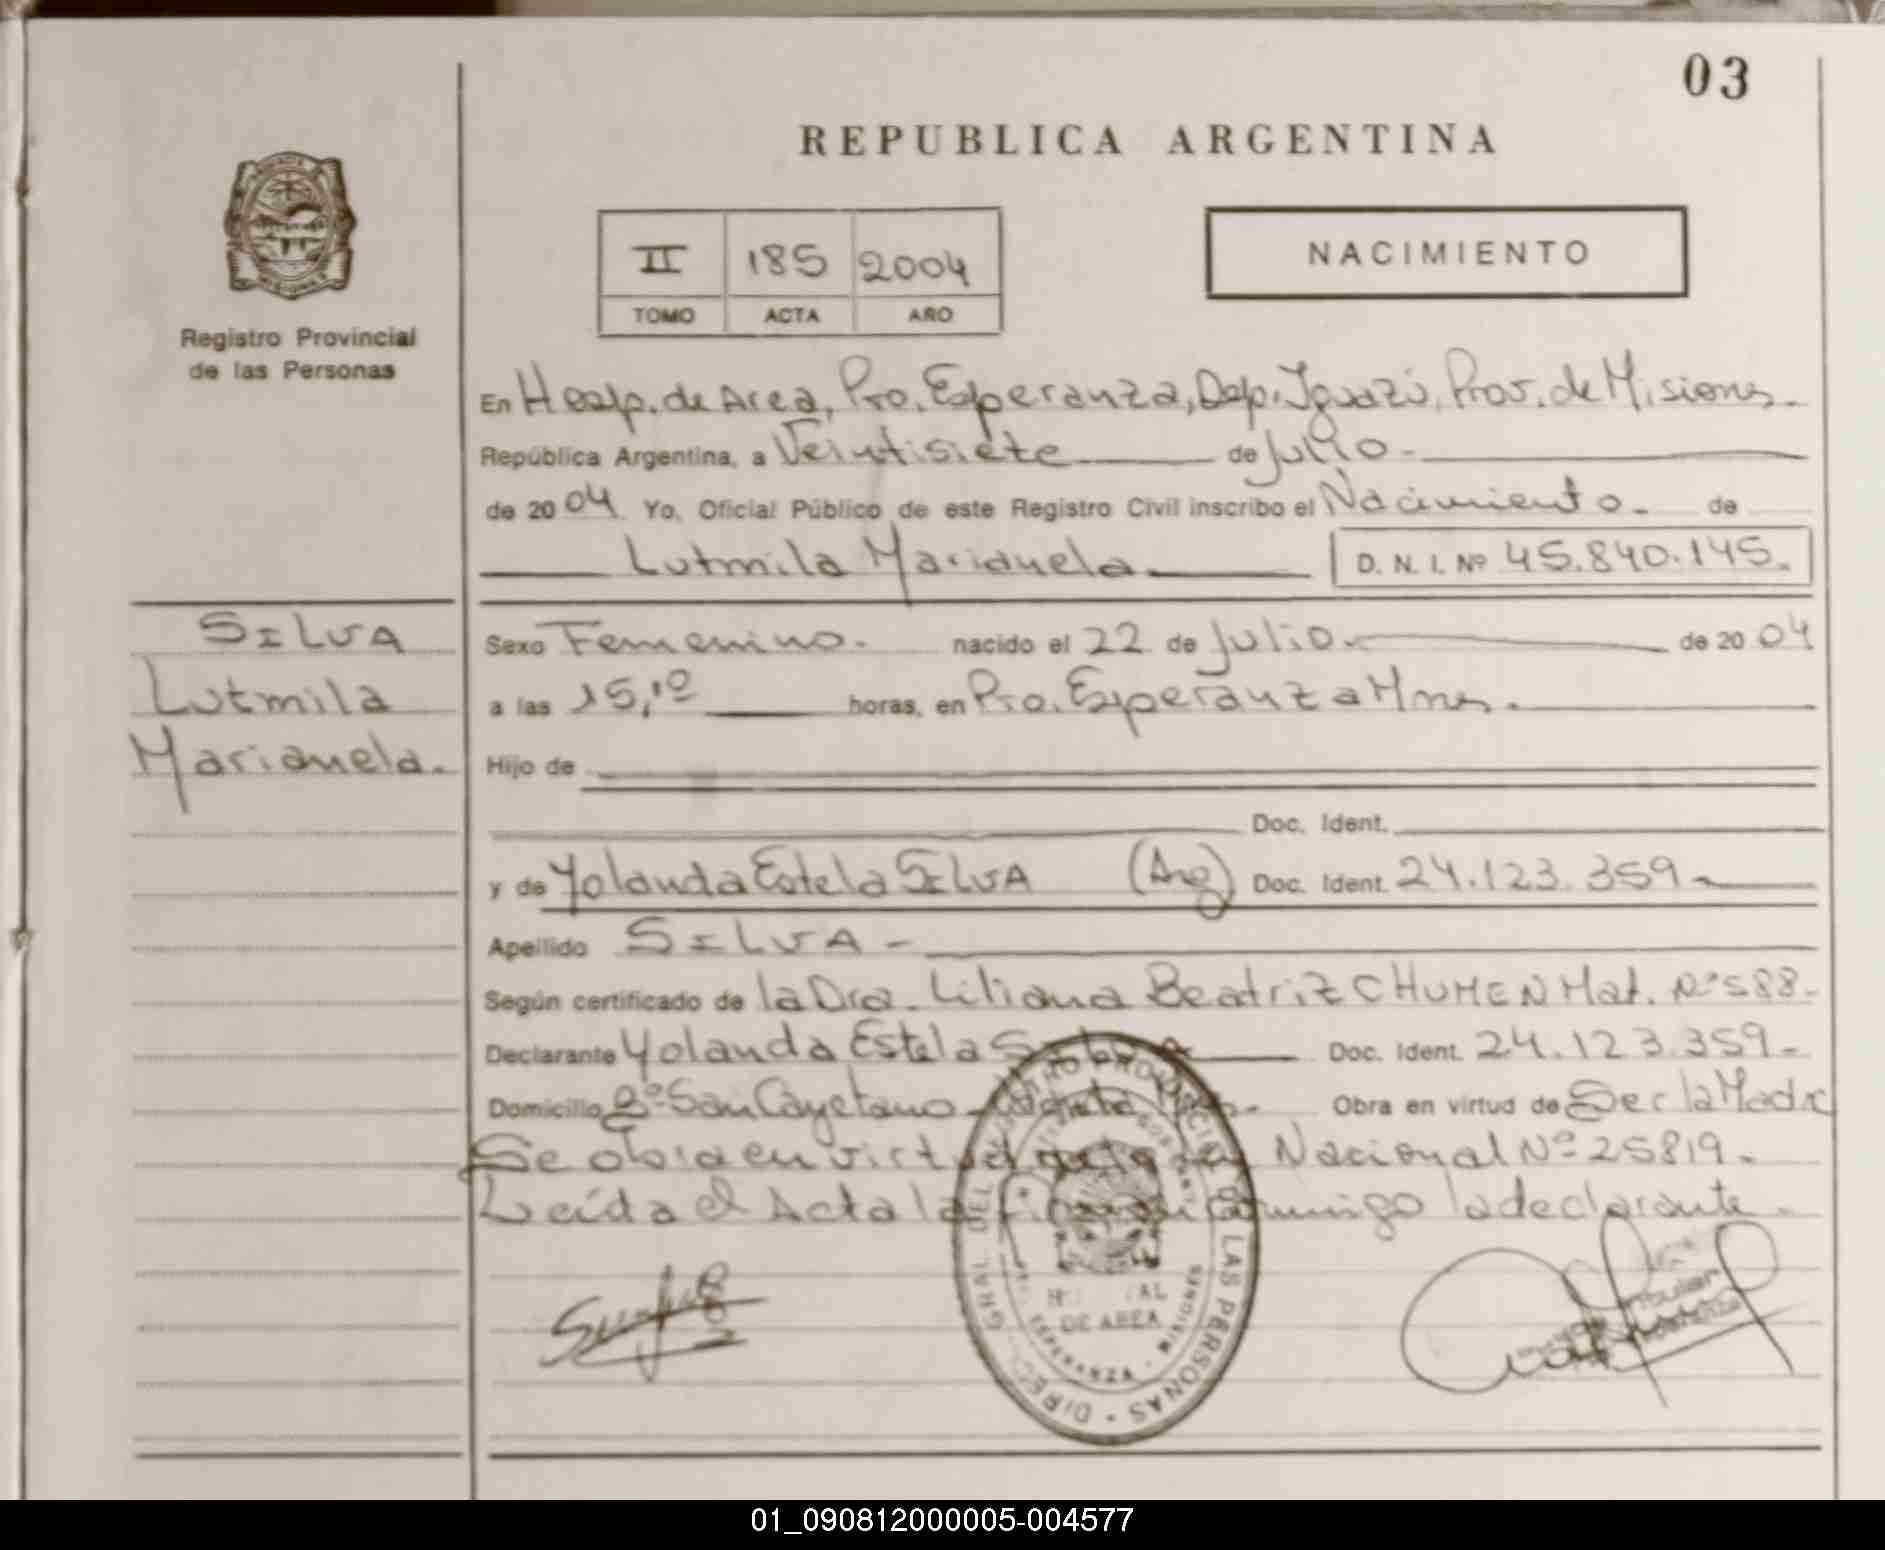 03
REPUBLICA ARGENTINA
II 185 2004
TOMO ACTA AÑO
NACIMIENTO
Registro Provincial
de las Personas
En Hosp. de Area, Pto. Esperanza, Dep. Iguazú, Prov. de Misiones.
República Argentina, a Veintisiete de Julio
de 2004 Yo, Oficial Público de este Registro Civil inscribo el Nacimiento. de
Lutmila Marianela D.N.I. Nº 45.840.145.
SILVA
Lutmila
Marianela.
Sexo Femenino. nacido el 22 de Julio de 2004
a las 15,10 horas, en Pto. Esperanza Mnes.
Hijo de
Doc. Ident.
y de Yolanda Estela SILVA (Arg) Doc. Ident. 24.123.359
Apellido SILVA
Según certificado de la Dra. Liliana Beatriz CHUMEN Mat. Nº 588
Declarante Yolanda Estela Doc. Ident. 24.123.359
Domicilio Bº San Cayetano Obra en virtud de Ser la Madre
Se obra en virtud Nacional Nº 25819.
Leída el Acta la conmigo la declarante.
DIREC. GRAL DEL REGISTRO PROVINCIAL DE LAS PERSONAS
DE AREA
ESPERANZA - MISIONES
01_090812000005-004577